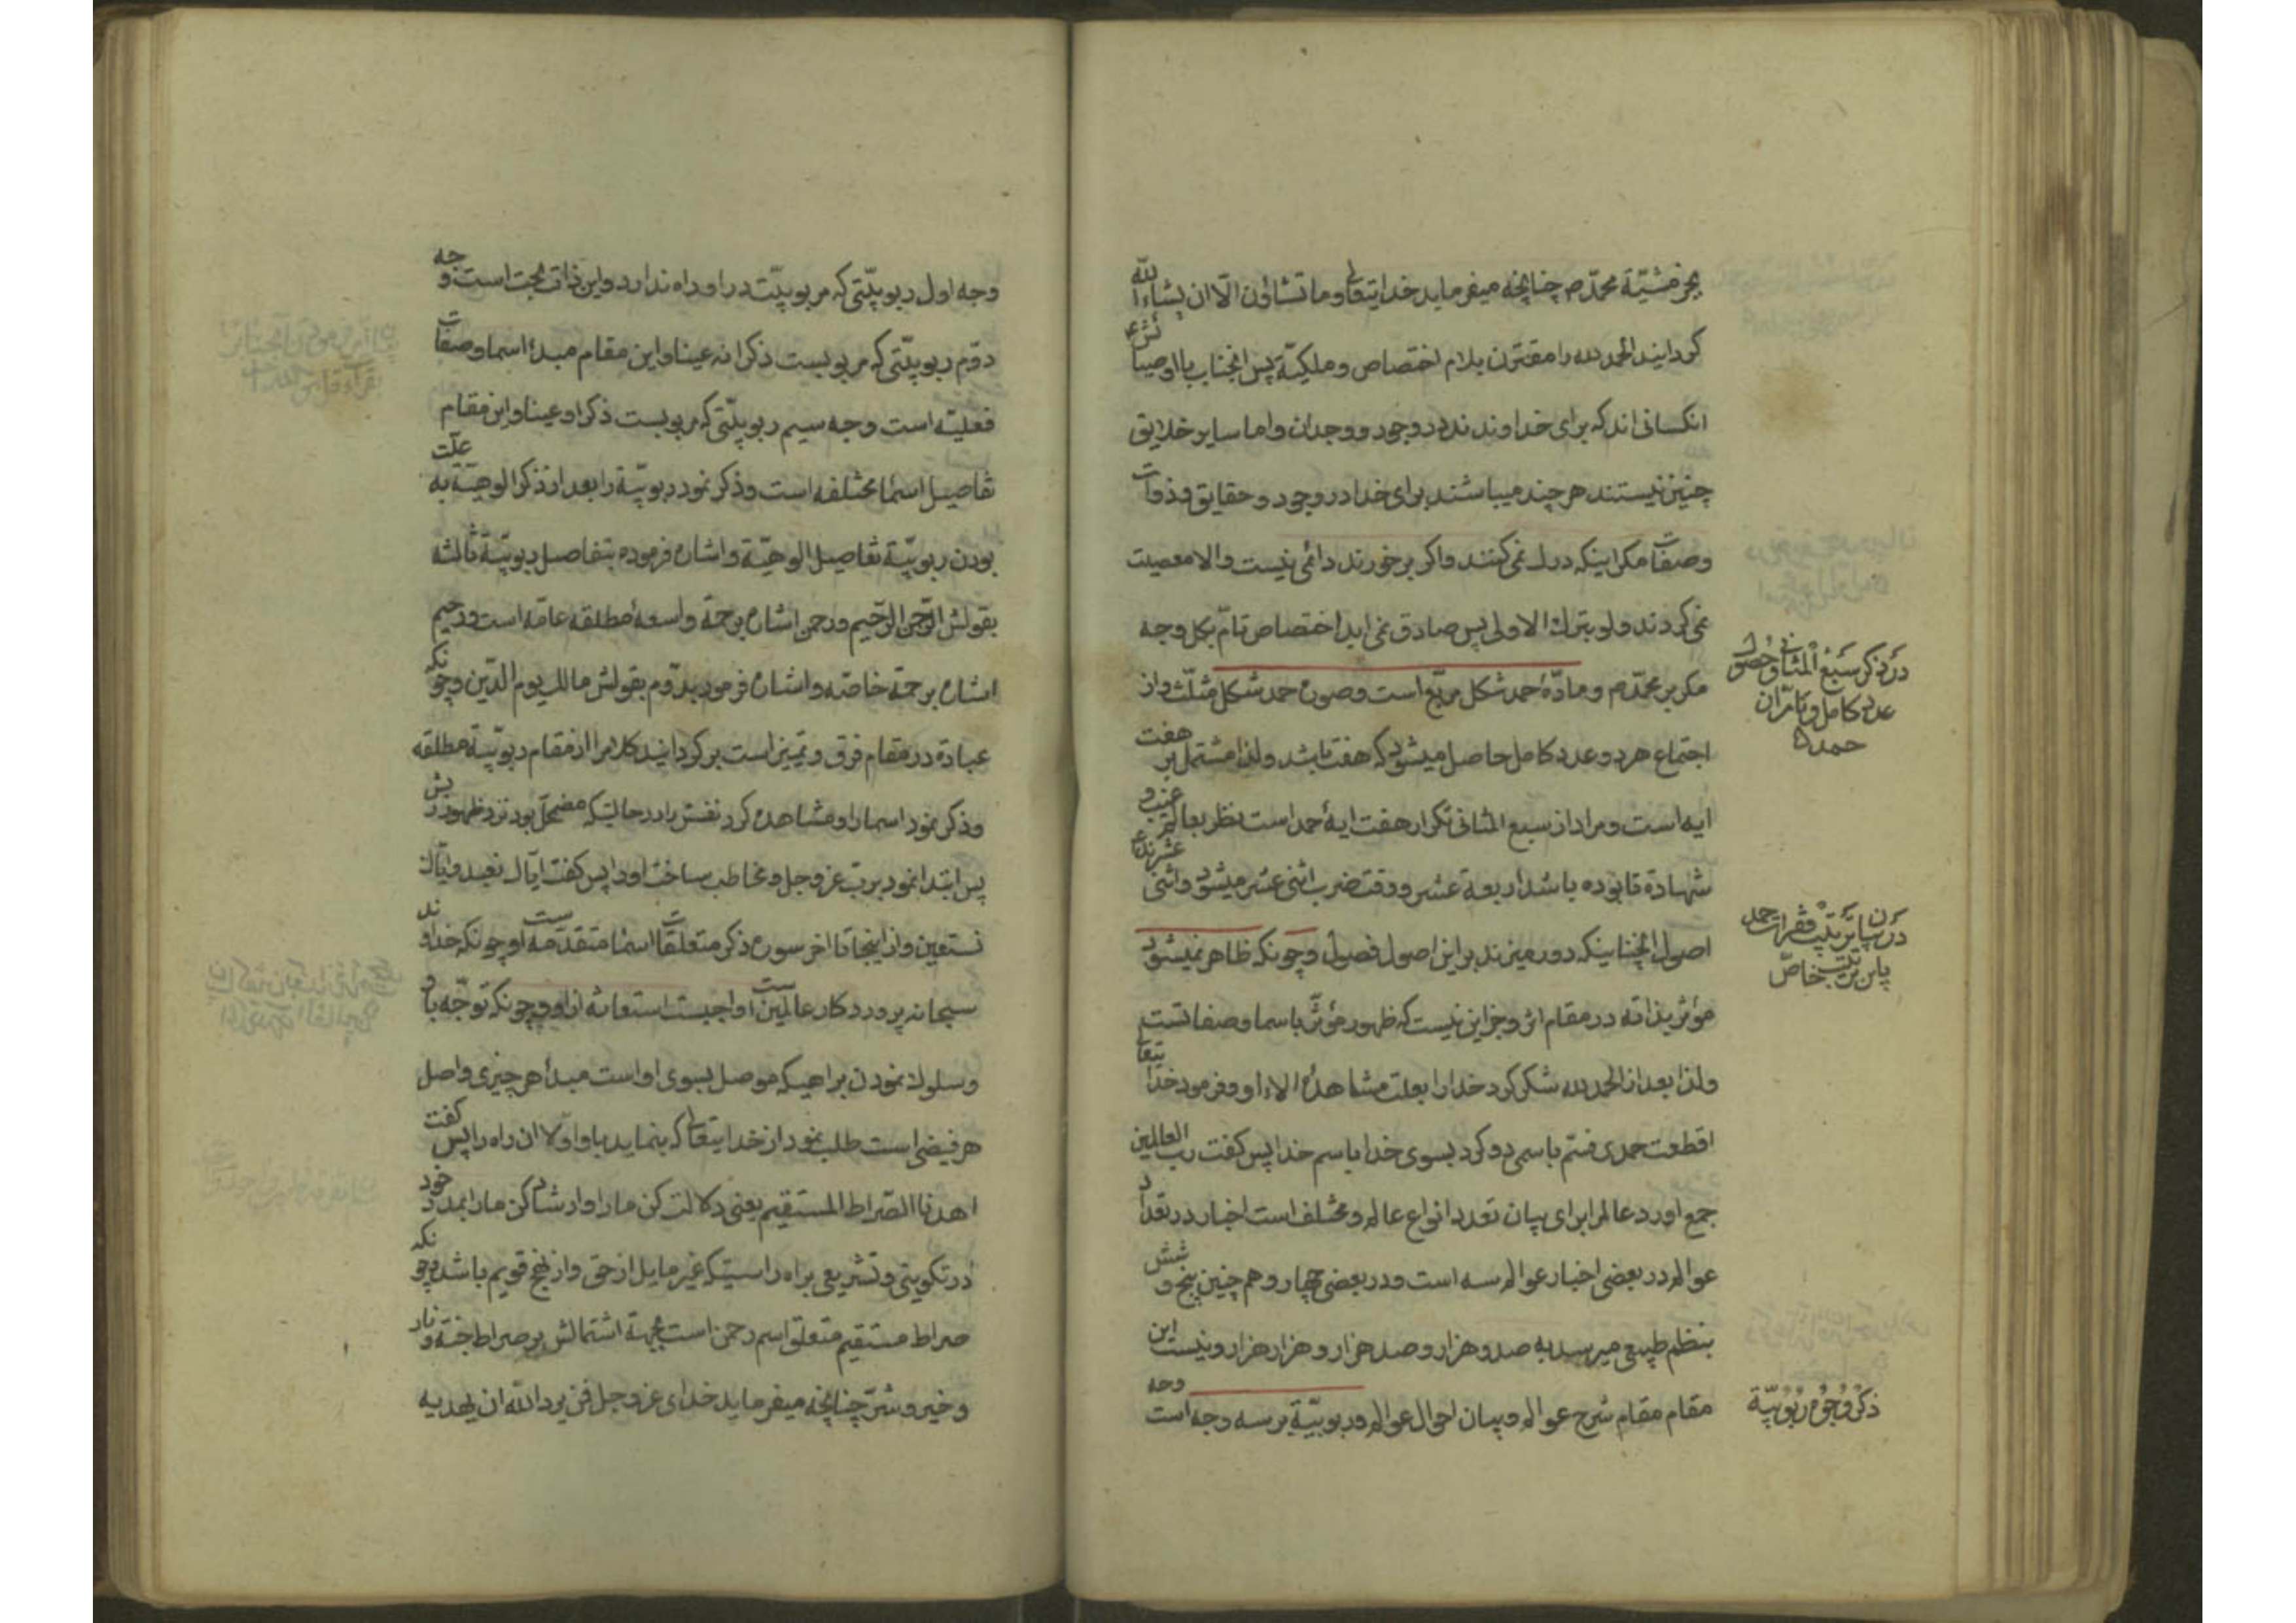 بجز مشیّة محمّد ص چنانچه میفرماید خدایتعالی و ما تشاؤن الّا ان یشاء الله
کردانید الحمد لله را مقترن بلام اختصاص و ملکیّة پس انجناب با اوصیا
انکسانی اند که برای خداوندند در وجود و وجدان و اما سایر خلایق
چنین نیستند هر چند میباشند برای خدا در وجود و حقایق و ذوات
و صفات مکر اینکه درک نمی کنند و اکر برخورند دائمی نیست و الا معصیت
نمی کردند ولو بترک الاولی پس صادق نمی اید اختصاص تامّ بکل وجه
مکر بر محمّد ص و مادّهٔ حمد شکل مربّع است و صورة حمد شکل مثلّث و از
در ذکر سَبْعُ الْمَثانی و حصول
عدد کامل و تامّ از ان
حمد
اجتماع هر دو عدد کامل حاصل میشود که هفت باشد و لذا مشتمل بر هفت
ایه است و مراد از سبع المثانی تکرار هفت ایهٔ حمد است نظر بعالم غیب و
شهادة تا بوده باشد اربعة عشر و وقت ضرب اثنی عشر میشود و اثنی عشرند
در بیان ترتیب فقرات حمد
باین ترتیب خاصّ
اصول انچنانیکه دور میزند بر این اصول فصول و چونکه ظاهر نمیشود
مؤثر بذاته در مقام اثر و جز این نیست که ظهور مؤثّر باسما و صفاتست
و لذا بعد از الحمد لله شکر کرد خدا را بعلت مشاهدهٔ الاء او و فرمود خدایتعالی
اقطعت حمدی فسمّ باسمی رو کرد بسوی خدا باسم خدا پس کفت رب العالمین
جمع اورد عالم را برای بیان تعدد انواع عالم و مختلف است اخبار در تعداد
عوالم در بعضی اخبار عوالم سه است و در بعضی چهار و هم چنین پنج و شش
بنظم طبیعی میرسد به صد و هزار و صد هزار و هزار هزار و نیست این
مقام مقام شرح عوالم و بیان احوال عوالم و ربوبیّة بر سه وجه است
ذکر وجوه ربوبیّة
وجه
وجه اول ربوبیّتی که مربوبیّت در او راه ندارد و این ذات بحت است وجه
دوّم ربوبیّتی که مربوبست ذکرا نه عینا و این مقام مبدء اسما و صفات
فعلیّه است وجه سیم ربوبیّتی که مربوبست ذکرا و عینا و این مقام
تفاصیل اسماء مختلفه است و ذکر نمود ربوبیّة را بعد از ذکر الوهیّة به علّت
بودن ربوبیّة تفاصیل الوهیّة و اشاره فرموده بتفاصیل ربوبیّة ثالثه
بقولش الرّحمن الرّحیم و رحمن اشاره برحمة واسعهٔ مطلقه عامّه است و رحیم
اشاره برحمة خاصّه و اشاره فرمود بدوّم بقولش مالک یوم الدّین و چونکه
عبادة در مقام فرق و تمییز است برکردانید کلام را از مقام ربوبیّة مطلقه
و ذکر نمود اسما را و مشاهده کرد نفس را در حالتیکه مضمحلّ بود نزد ظهور ربش
پس ابتدا نمود بربّ عزّ و جل و مخاطب ساخت او را پس کفت ایّاک نعبد و ایّاک
نستعین و از اینجا تا اخر سوره ذکر متعلقات اسماء متقدّمه است و چونکه خداوند
سبحانه پروردکار عالمین است واجبست استعانه از او و چونکه توجّه باو
و سلوک نمودن براهیکه موصل بسوی او است مبدأ هر چیزی واصل
هر فیضی است طلب نمود از خدایتعالی که بنماید باو اولا ان راه را پس کفت
اهدنا الصّراط المستقیم یعنی دلالت کن ما را و ارشاد کن ما را بمدد خود
در تکوینی و تشریعی براه راستیکه غیر مایل از حق و از نهج قویم باشد و چونکه
صراط مستقیم متعلق اسم رحمن است بجهة اشتمالش بر صراط جنّة و نار
و خیر و شرّ چنانچه میفرماید خدای عزّ و جل فمن یرد الله ان یهدیه